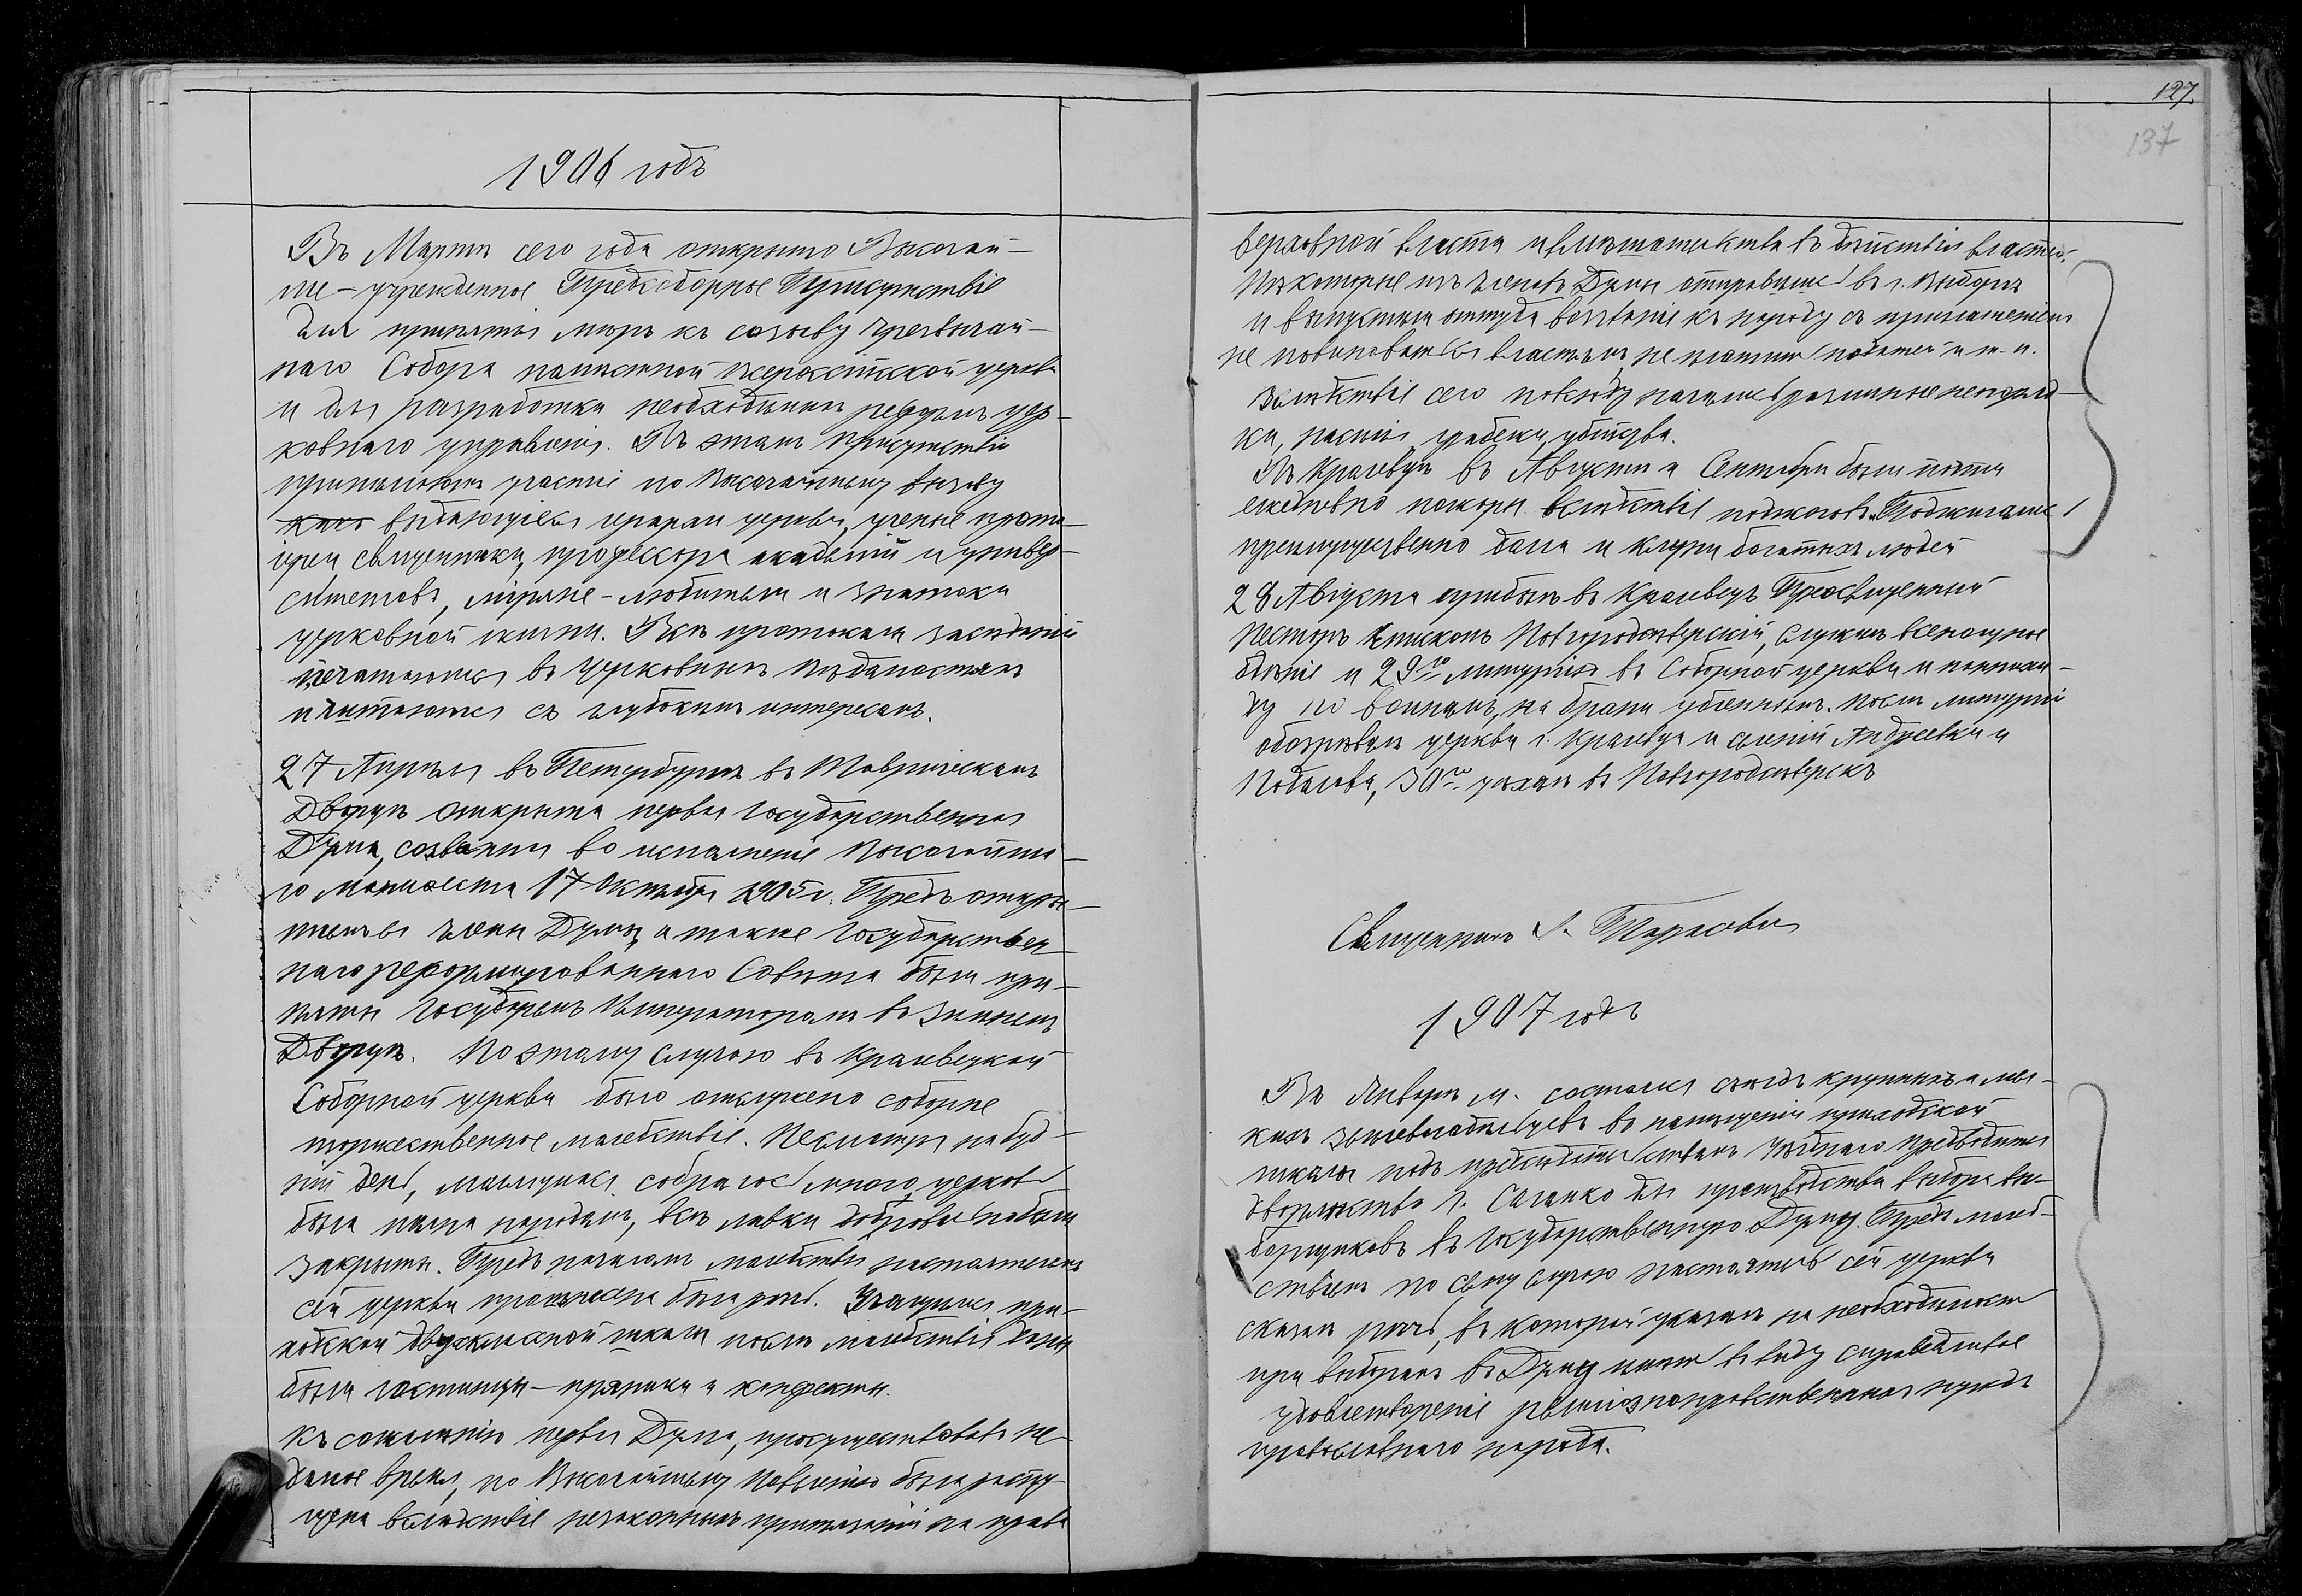 1906 годъ
Въ Мартѣ сего года открыто Высочай-
ше-учрежденное Предсоборное Присутствіе
для принятія мѣръ къ созыву чрезвычай-
наго Собора помѣстной всероссійской церкви
и для разработки необходимыхъ реформъ цер-
ковнаго управленія. Въ этомъ присутствіи
принимаютъ участіе по Высочайшему вызову
выдающіеся іерархи церкви, ученые прото-
іереи, священники, профессора академій и универ-
ситетовъ, міряне-любители и знатоки
церковной жизни. Всѣ протоколы засѣданій
печатаются въ Церковныхъ Вѣдомостяхъ
и читаются съ глубокимъ интересомъ.
27 Апрѣля въ Петербургѣ въ Таврическомъ
Дворцѣ открыта первая Государственная
Дума, созванная во исполненіе Высочайша-
го манифеста 17 Октября 1905 г. Предъ откры-
тіемъ члены Думы, а также Государствен-
наго реформированнаго Совѣта были при-
няты Государемъ Императоромъ въ Зимнемъ
Дворцѣ. По этому случаю въ Кролевецкой
Соборной церкви было отслужено соборне
торжественное молебствіе. Несмотря на буд-
ній день, молящихся собралось много, церковь
была полна народомъ, всѣ лавки добровольно были
закрыты. Предъ началомъ молебствія настоятелемъ
сей церкви произнесена была рѣчь. Учащимся при-
ходской двухклассной школы послѣ молебствія даны
были гостинцы-пряники и конфекты.
Къ сожалѣнію первая Дума, просуществовавъ не-
долгое время, по Высочайшему повелѣнію была распу-
щена вслѣдствіе незаконныхъ притязаній на права
127.
137
верховной власти и вмѣшательства въ дѣйствія властей.
Нѣкоторые изъ членовъ Думы отправились въ г. Выборгъ
и выпустили оттуда воззваніе къ народу съ приглашеніемъ
не повиноваться властямъ, не платить податей и т. п.
Вслѣдствіе сего повсюду начались различные непоряд-
ки, насилія, грабежи, убійства.
Въ Кролевцѣ въ Августѣ и Сентябрѣ были почти
ежедневно пожары вслѣдствіе поджоговъ. Поджигались
преимущественно дома и клуни богатыхъ людей
28 Августа прибылъ въ Кролевецъ Преосвященный
Несторъ Епископъ Новгородсѣверскій, служилъ всенощное
бдѣніе и 29го литургію въ Соборной церкви и панихи-
ду по воинамъ, на брани убіеннымъ. Послѣ литургіи
обозрѣвалъ церкви г. Кролевца и селеній Андреевки и
Подолова, 30го уѣхалъ въ Новгородсѣверскъ
Священникъ Тарасевичъ
1907 годъ
Въ Январѣ м. состоялся съѣздъ крупныхъ и мел-
кихъ землевладѣльцевъ въ помѣщеніи приходской
школы подъ предсѣдательствомъ Уѣзднаго Предводителя
дворянства г. Саханко для производства выбора вы-
борщиковъ въ Государственную Думу. Предъ молеб-
ствіемъ по сему случаю настоятель сей церкви
сказалъ рѣчь, въ которой указалъ на необходимость
при выборахъ въ Думу имѣть въ виду справедливое
удовлетвореніе религіознонравственныхъ нуждъ
православнаго народа.